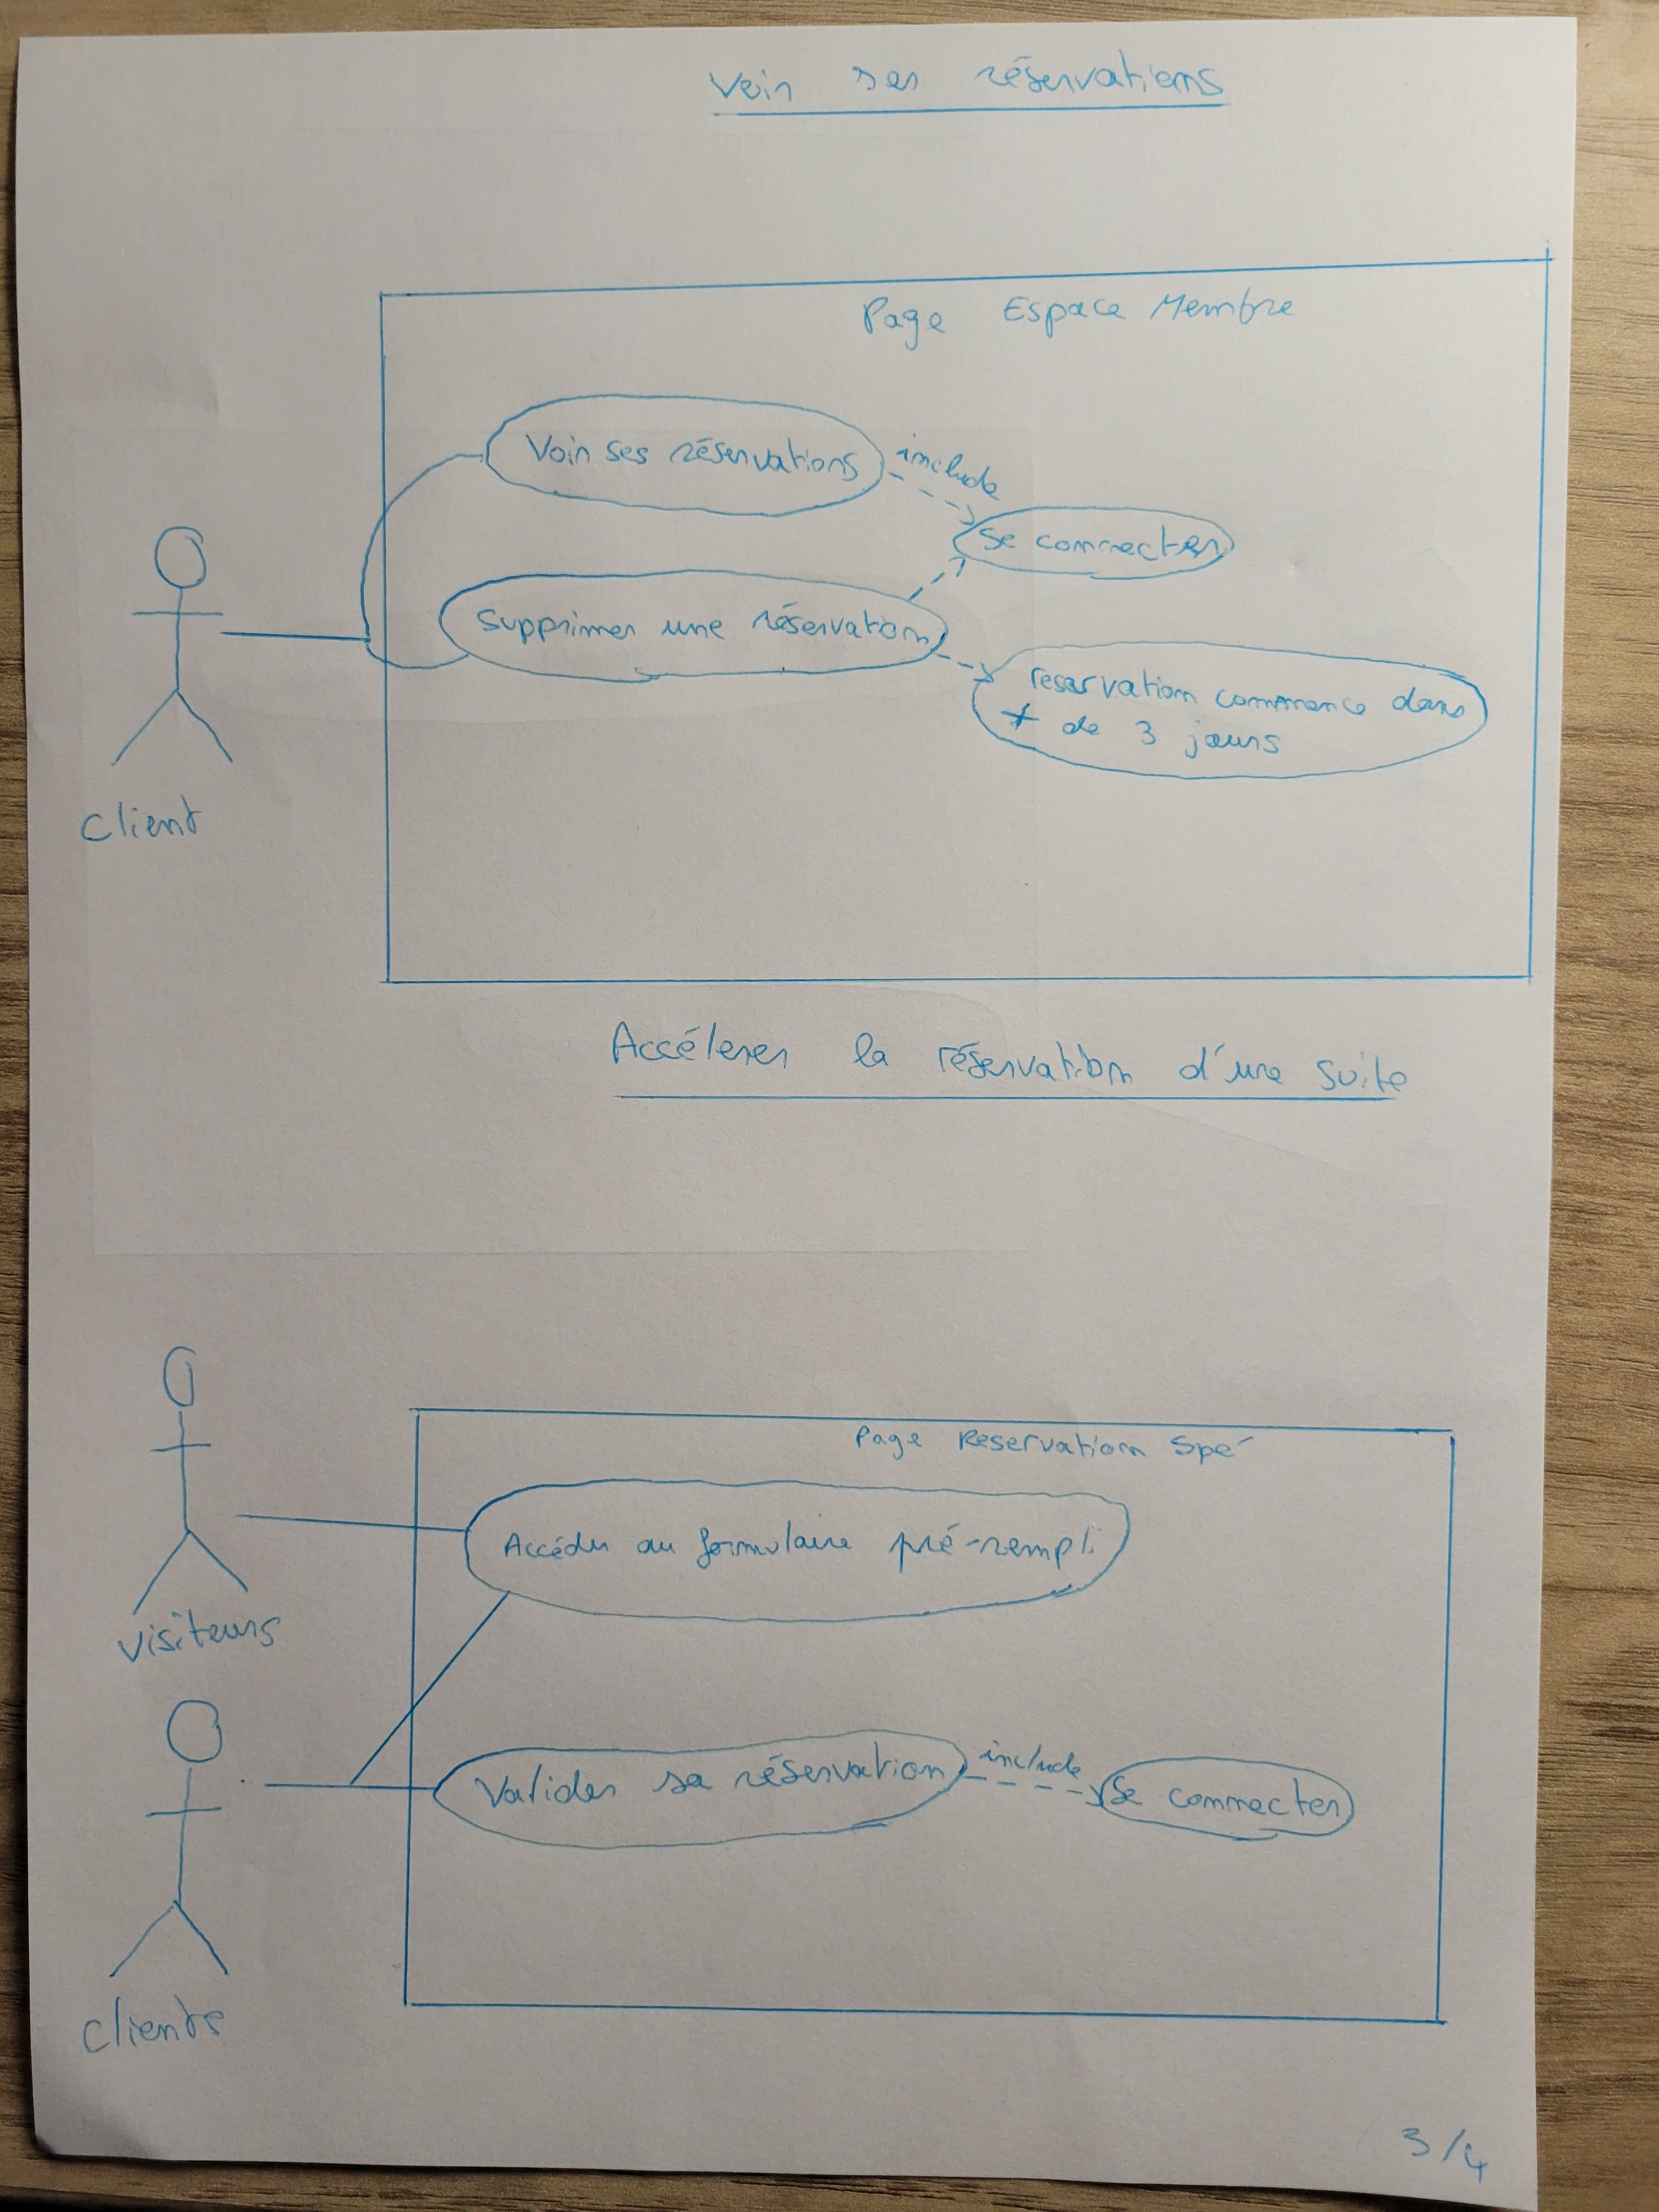 Voir ses réservations
Page Espace Membre
Voir ses réservations
include
Se connecter
Supprimer une réservation
reservation commence dans
+ de 3 jours
Client
Accélerer la réservation d'une suite
Page Reservation Spé
Accéder au formulaire pré-rempli
visiteurs
Valider sa réservation
include
Se connecter
Clients
3/4